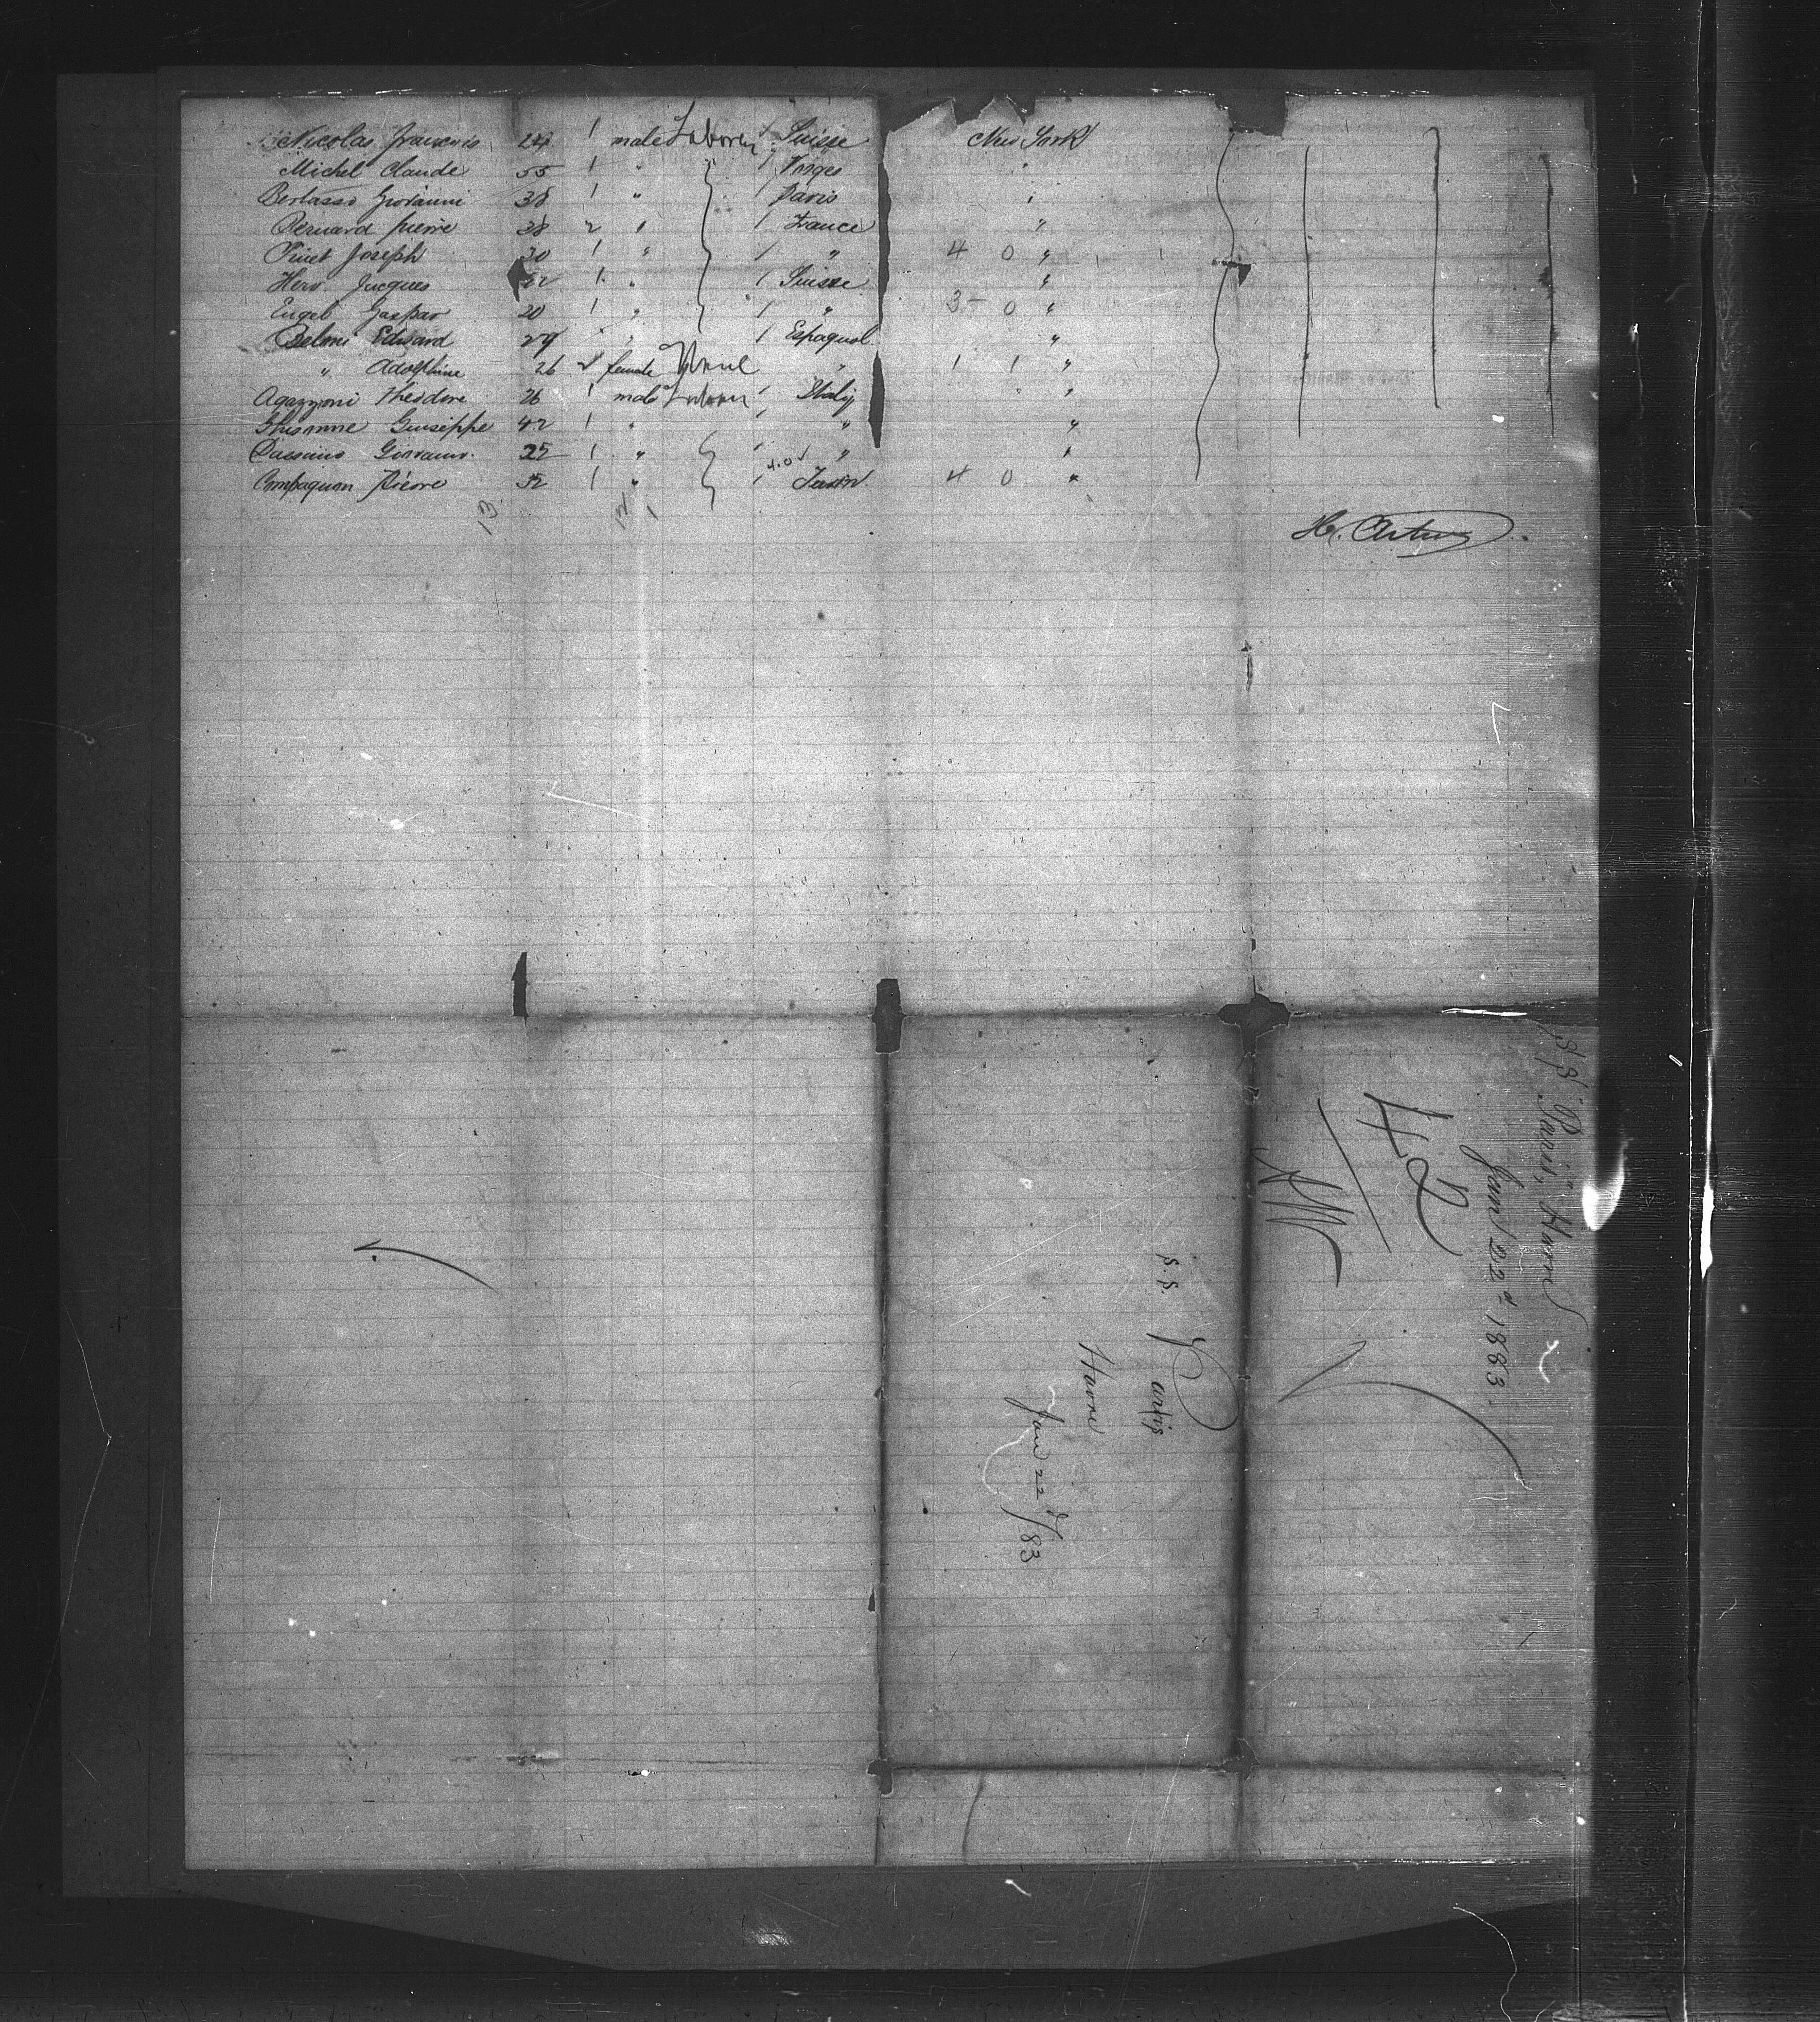 Nicolas Francois 24 1 male Laborer 1 Suisse New York
Michel Claude 55 1 " 1 Vosges "
Bertasso Giovanni 38 1 " 1 Paris "
Bernard pierre 38 2 " 1 France "
Pinet Joseph 30 1 " 1 " 4 0 "
Herv Jacques 22 1 " 1 Suisse "
Engel Gaspar 20 1 " 1 " 3 0 "
Belmi Edward 27 " 1 Espagnol "
" Adolphine 26 2 female None " 1 1 "
Agazzoni Theodore 26 1 male Laborer 1 Italy "
Giuseppe 42 1 " " "
Giovanni 25 1 " " "
Compagnon Pierre 52 1 " 1 4 0 "
13 12 1
S/S "Paris," Havre
Jany 22d 1883.
42
S.S. Paris
Havre
Jan 22d/83